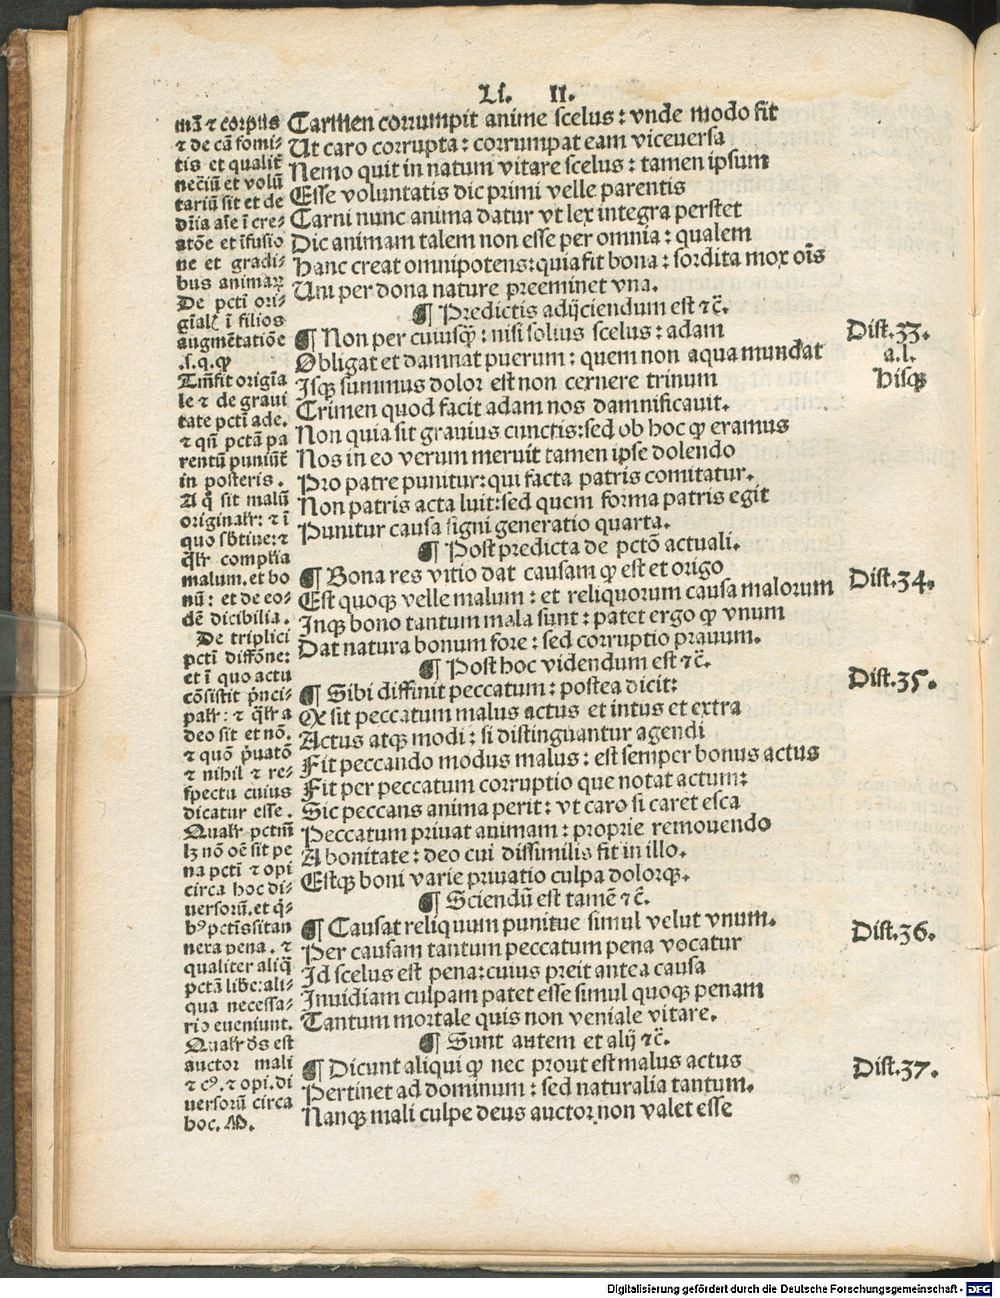 Li. II.
mā ⁊ corpus
⁊ de cā fomi-
tis et qualit̄
nec̄iū et volū
tariū sit et de
dr̄ia aīe ī cre-
atōe et īfusio
ne et gradi-
bus animaꝝ
De pcti ori-
gīalꝭ ī filios
augmētatiōe
.s.q.ꝙ
Tm̄fit origīa
le ⁊ de graui
tate pcti ade.
⁊ qn̄ pctā pa
rentū puniūt̄
in posteris.
A q̄ sit malū
originalr̄: ⁊ ī
quo sb̄tiue:⁊
q̄lr̄ complīa
malum.et bo
nū: et de eo-
dē dicibilia.
De triplici
pcti diffōne:
et ī quo actu
cōsistit p̄nci-
palr̄: ⁊ q̄lr̄ a
deo sit et nō.
⁊ quō p̄uatō
⁊ nihil ⁊ re-
spectu cuius
dicatur esse.
Qualr̄ pctm̄
lꝫ nō oē sit pe
na pcti ⁊ opi
circa hoc di-
uersorū.et q̄-
bꝰ pctis sit an
nera pena. ⁊
qualiter aliq̄
pctā libe:ali-
qua necessa-
rio eueniunt.
Qualr̄ ds̄ est
auctor mali
⁊ cꝰ. ⁊ opi.di
uersorū circa
hoc. M.
Carmen corrumpit anime scelus: vnde modo fit
Ut caro corrupta: corrumpat eam viceuersa
Nemo quit in natum vitare scelus: tamen ipsum
Esse voluntatis dic primi velle parentis
Carni nunc anima datur vt lex integra perstet
Dic animam talem non esse per omnia: qualem
Hanc creat omnipotens:quia fit bona: sordita mox oīs
Uni per dona nature preeminet vna.
¶ Predictis adijciendum est ⁊c̄.
¶ Non per cuiusqꝫ: nisi solius scelus: adam
Obligat et damnat puerum: quem non aqua mundat
Isqꝫ summus dolor est non cernere trinum
Crimen quod facit adam nos damnificauit.
Non quia sit grauius cunctis:sed ob hoc ꝙ eramus
Nos in eo verum meruit tamen ipse dolendo
Pro patre punitur:qui facta patris comitatur.
Non patris acta luit:sed quem forma patris egit
Punitur causa signi generatio quarta.
¶ Post predicta de pctō actuali.
¶ Bona res vitio dat causam ꝙ est et origo
Est quoqꝫ velle malum: et reliquorum causa malorum
Inqꝫ bono tantum mala sunt: patet ergo ꝙ vnum
Dat natura bonum fore: sed corruptio prauum.
¶ Post hoc videndum est ⁊c̄.
¶ Sibi diffinit peccatum: postea dicit:
Q sit peccatum malus actus et intus et extra
Actus atqꝫ modi: si distinguantur agendi
Fit peccando modus malus: est semper bonus actus
Fit per peccatum corruptio que notat actum:
Sic peccans anima perit: vt caro si caret esca
Peccatum priuat animam: proprie remouendo
A bonitate: deo cui dissimilis fit in illo.
Estqꝫ boni varie priuatio culpa dolorqꝫ.
¶ Sciendū est tamē ⁊c̄.
¶ Causat reliquum punitue simul velut vnum.
Per causam tantum peccatum pena vocatur
Id scelus est pena:cuius preit antea causa
Inuidiam culpam patet esse simul quoqꝫ penam
Tantum mortale quis non veniale vitare.
¶ Sunt autem et alij ⁊c̄.
¶ Dicunt aliqui ꝙ nec prout est malus actus
Pertinet ad dominum: sed naturalia tantum.
Nanqꝫ mali culpe deus auctor non valet esse
Dist.33.
a.l.
Hisqꝫ
Dist.34.
Dist.35.
Dist.36.
Dist.37.
Digitalisierung gefördert durch die Deutsche Forschungsgemeinschaft - DFG